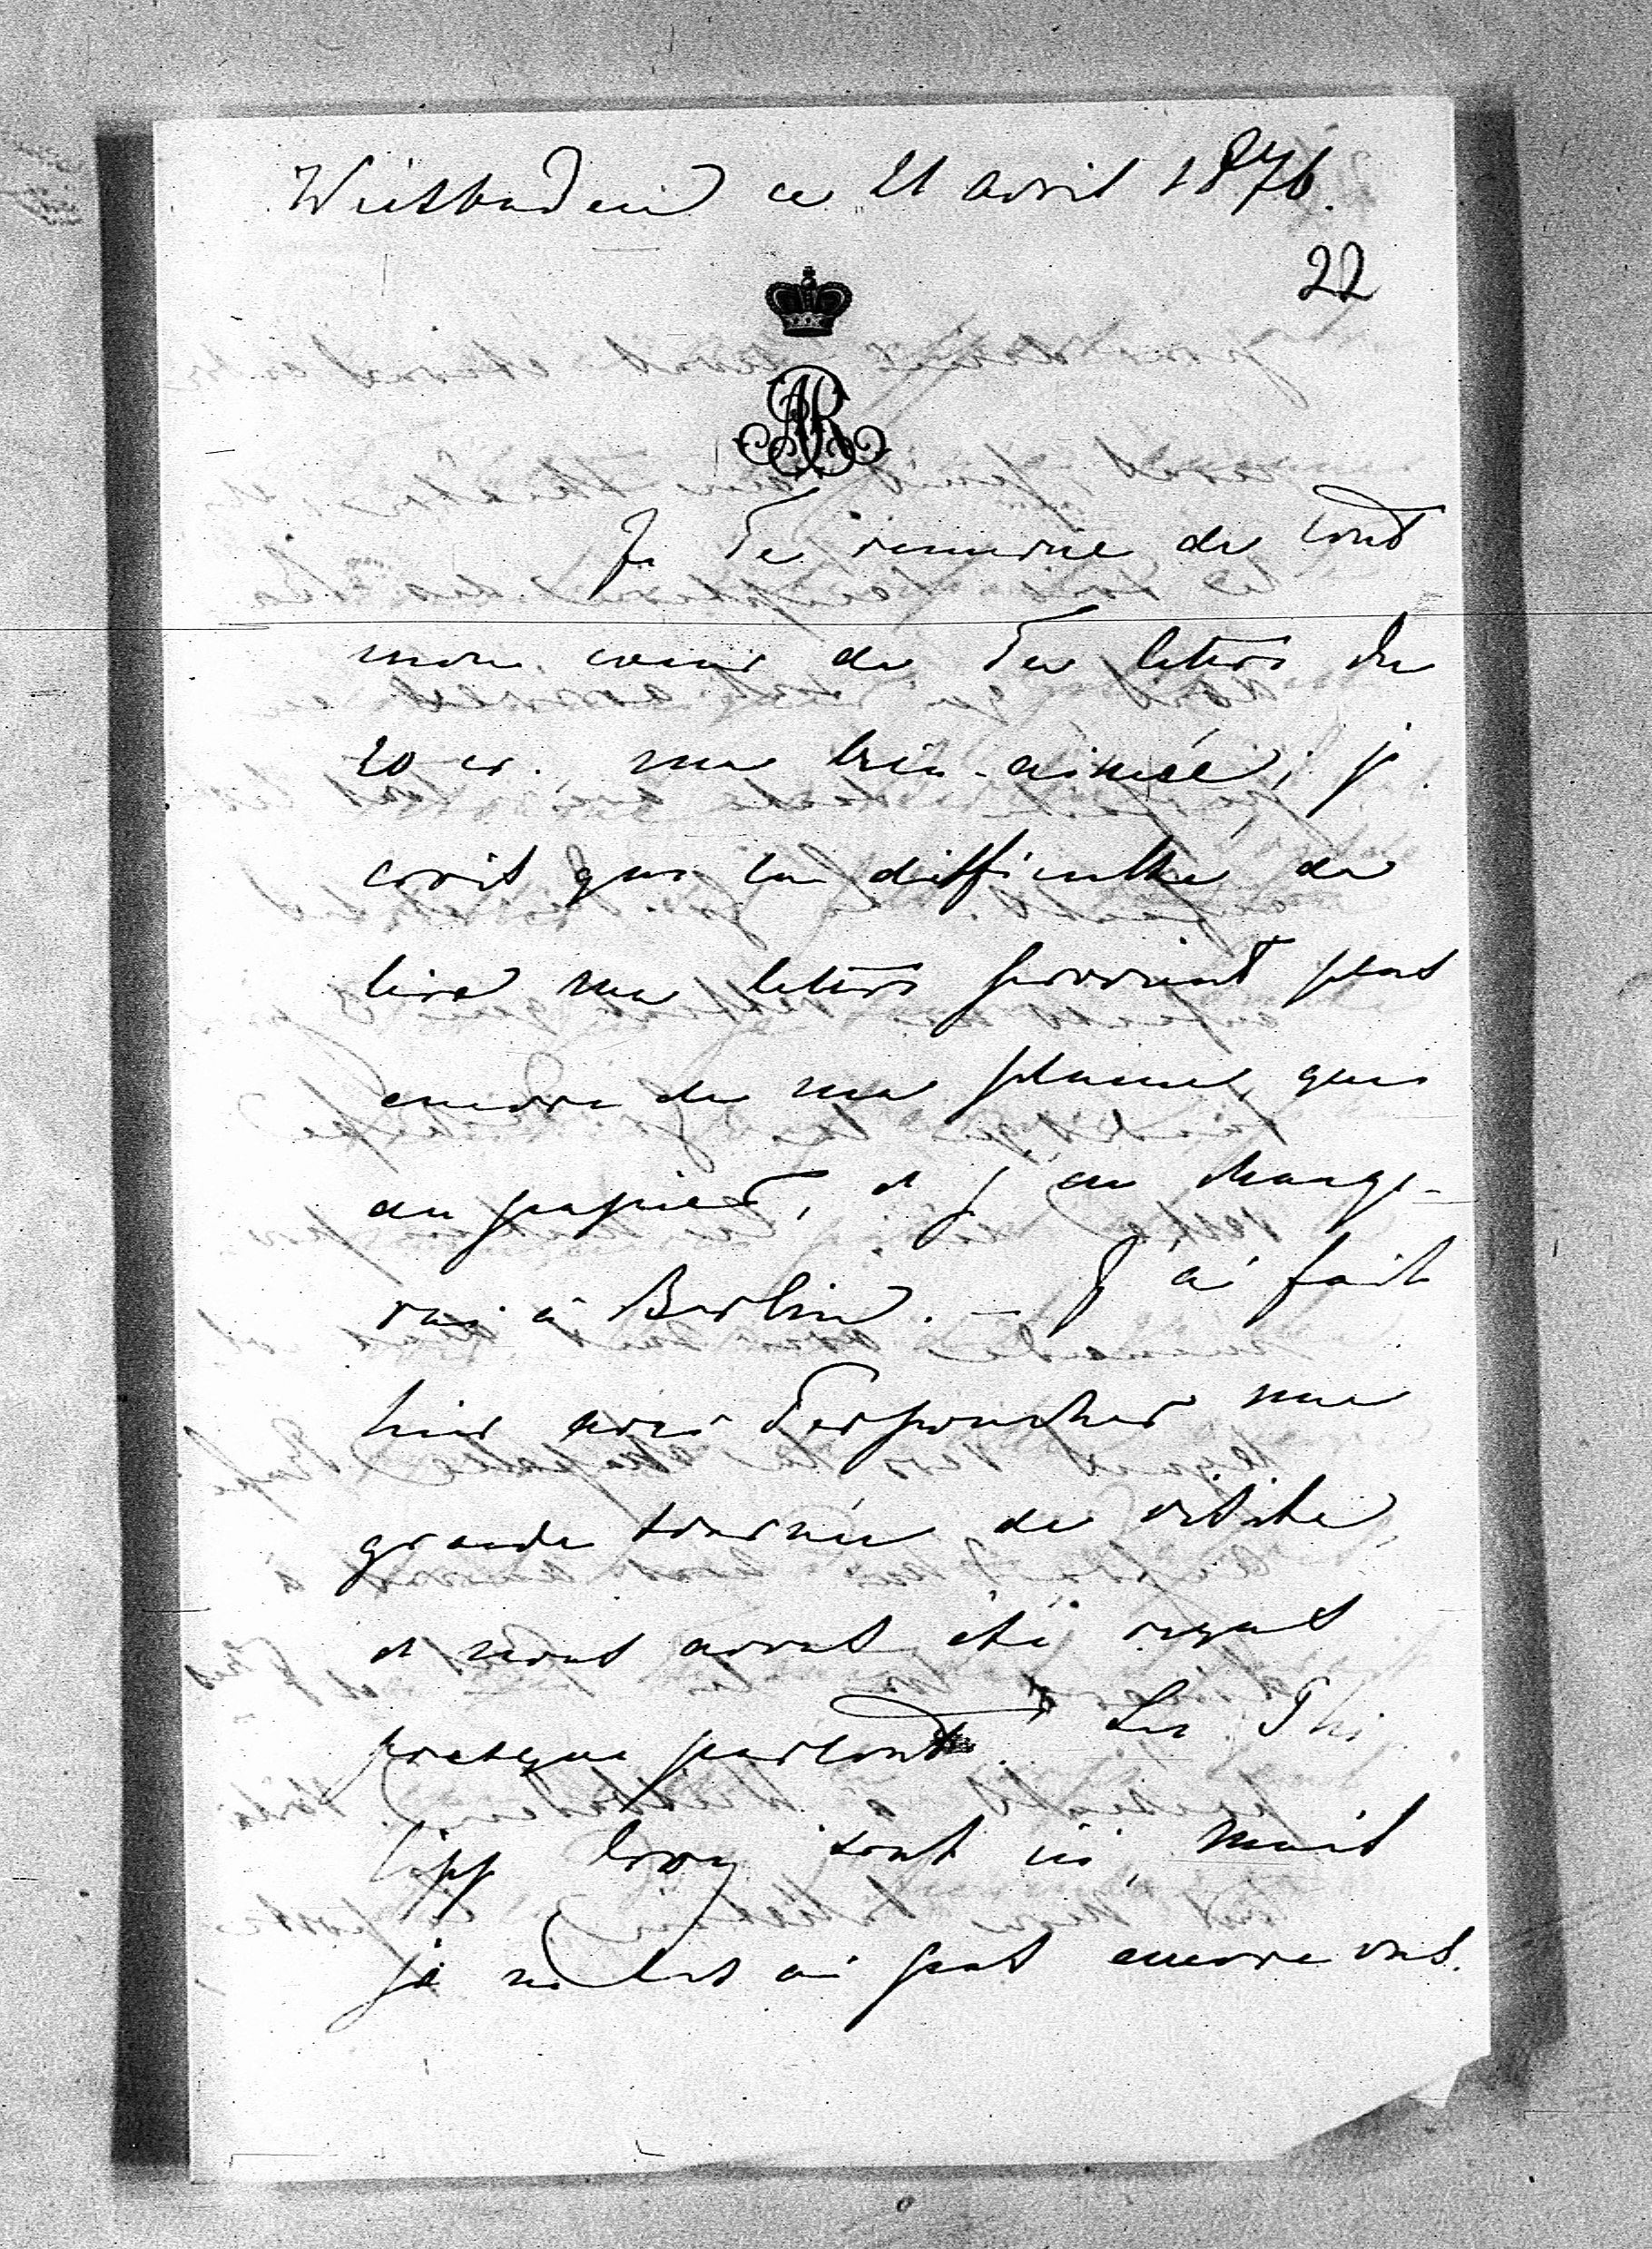 Wiesbaden ce 21 avril 1876.
22
AR
Je Te remercie de tout
mon coeur de Ta lettre du
20 cr. ma bien-aimée; je
crois que la difficulthé de
lire ma lettre provient plus
encore de ma plume, que
du papier, et j'en change-
rai à Berlin. — J'ai fait
hier avec Perponcher une
grande tournée de visite,
et nous avons été reçus
presque partout. Les Phi
lipp Croy sont ici, mais
je ne les ai pas encore vus.